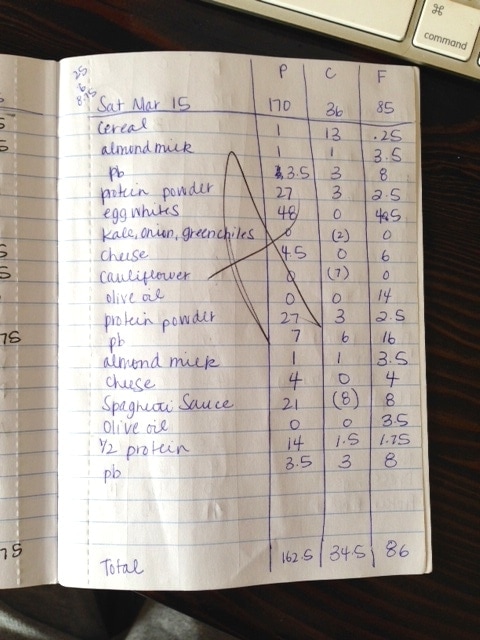 ⌘
command
25
6
8.75
P C F
Sat Mar 15 170 36 85
Cereal 1 13 .25
almond milk 1 1 3.5
pb 3.5 3 8
protein powder 27 3 2.5
egg whites 48 0
Kale, onion, green chiles 0 (2) 0
Cheese 4.5 0 6
Cauliflower 0 (7) 0
olive oil 0 0 14
protein powder 27 3 2.5
pb 7 6 16
almond milk 1 1 3.5
Cheese 4 0 4
Spaghetti Sauce 21 (8) 8
Olive oil 0 0 3.5
1/2 protein 14 1.5 1.25
pb 3.5 3 8
75
75
Total 162.5 34.5 86